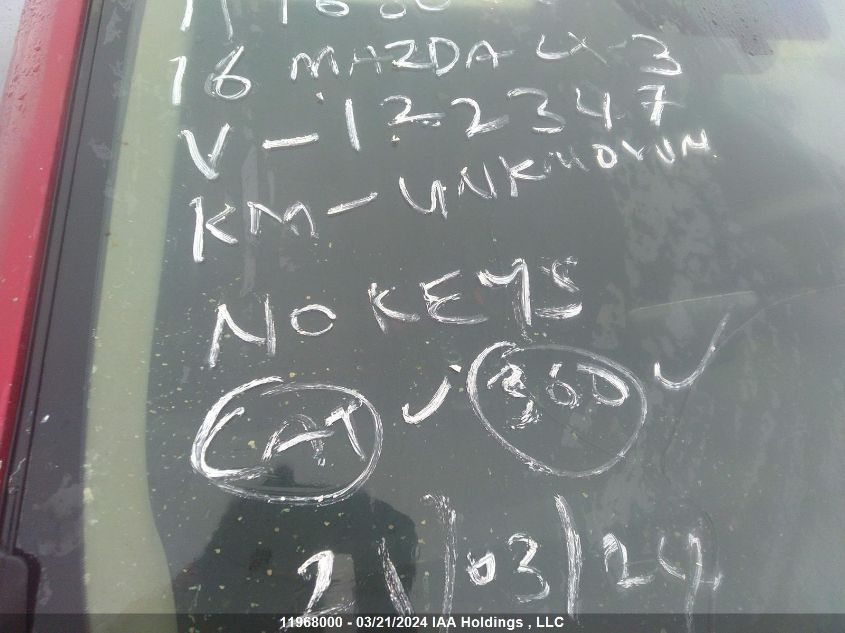 16 MAZDA CX-3
V-122347
KM-UNKNOWN
NO KEYS
CAT ✓ 360 ✓
21/03/24
11968000 - 03/21/2024 IAA Holdings , LLC